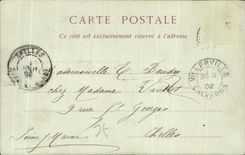 CARTE POSTALE
Ce côté est exclusivement réservé à l'adresse
CHELLES
VILLERVILLE
02
CALVADOS
Mademoiselle C. Baudry
chez Madame
9 rue St Georges
Chelles
Seine & Marne